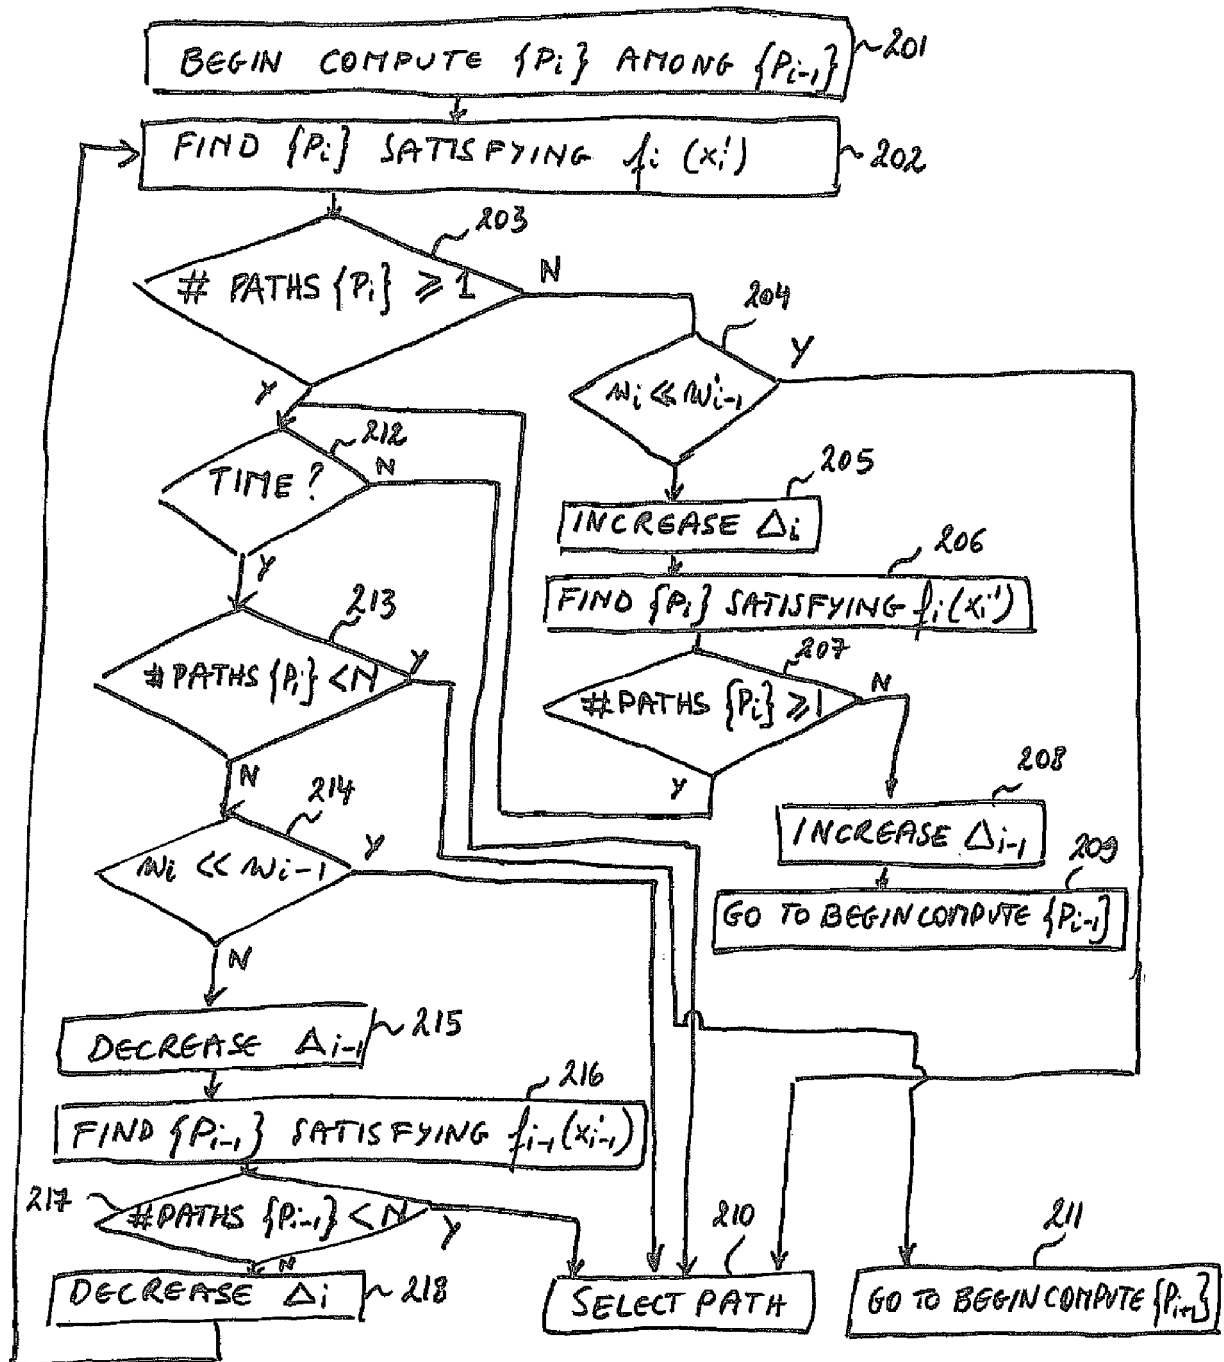 BEGIN COMPUTE {Pi} AMONG {Pi-1}
201
FIND {Pi} SATISFYING fi (xi')
202
203
# PATHS {Pi} ⩾ 1
N
Y
204
wi ≪ w'i-1
Y
212
TIME ?
N
Y
205
INCREASE Δi
206
FIND {Pi} SATISFYING fi (xi')
213
# PATHS {Pi} < N
Y
N
207
# PATHS {Pi} ⩾ 1
N
Y
208
INCREASE Δi-1
209
GO TO BEGIN COMPUTE {Pi-1}
214
wi ≪ wi-1
Y
N
DECREASE Δi-1
215
216
FIND {Pi-1} SATISFYING fi-1 (x'i-1)
217
# PATHS {Pi-1} < N
Y
N
DECREASE Δi
218
210
SELECT PATH
211
GO TO BEGIN COMPUTE {Pi+1}